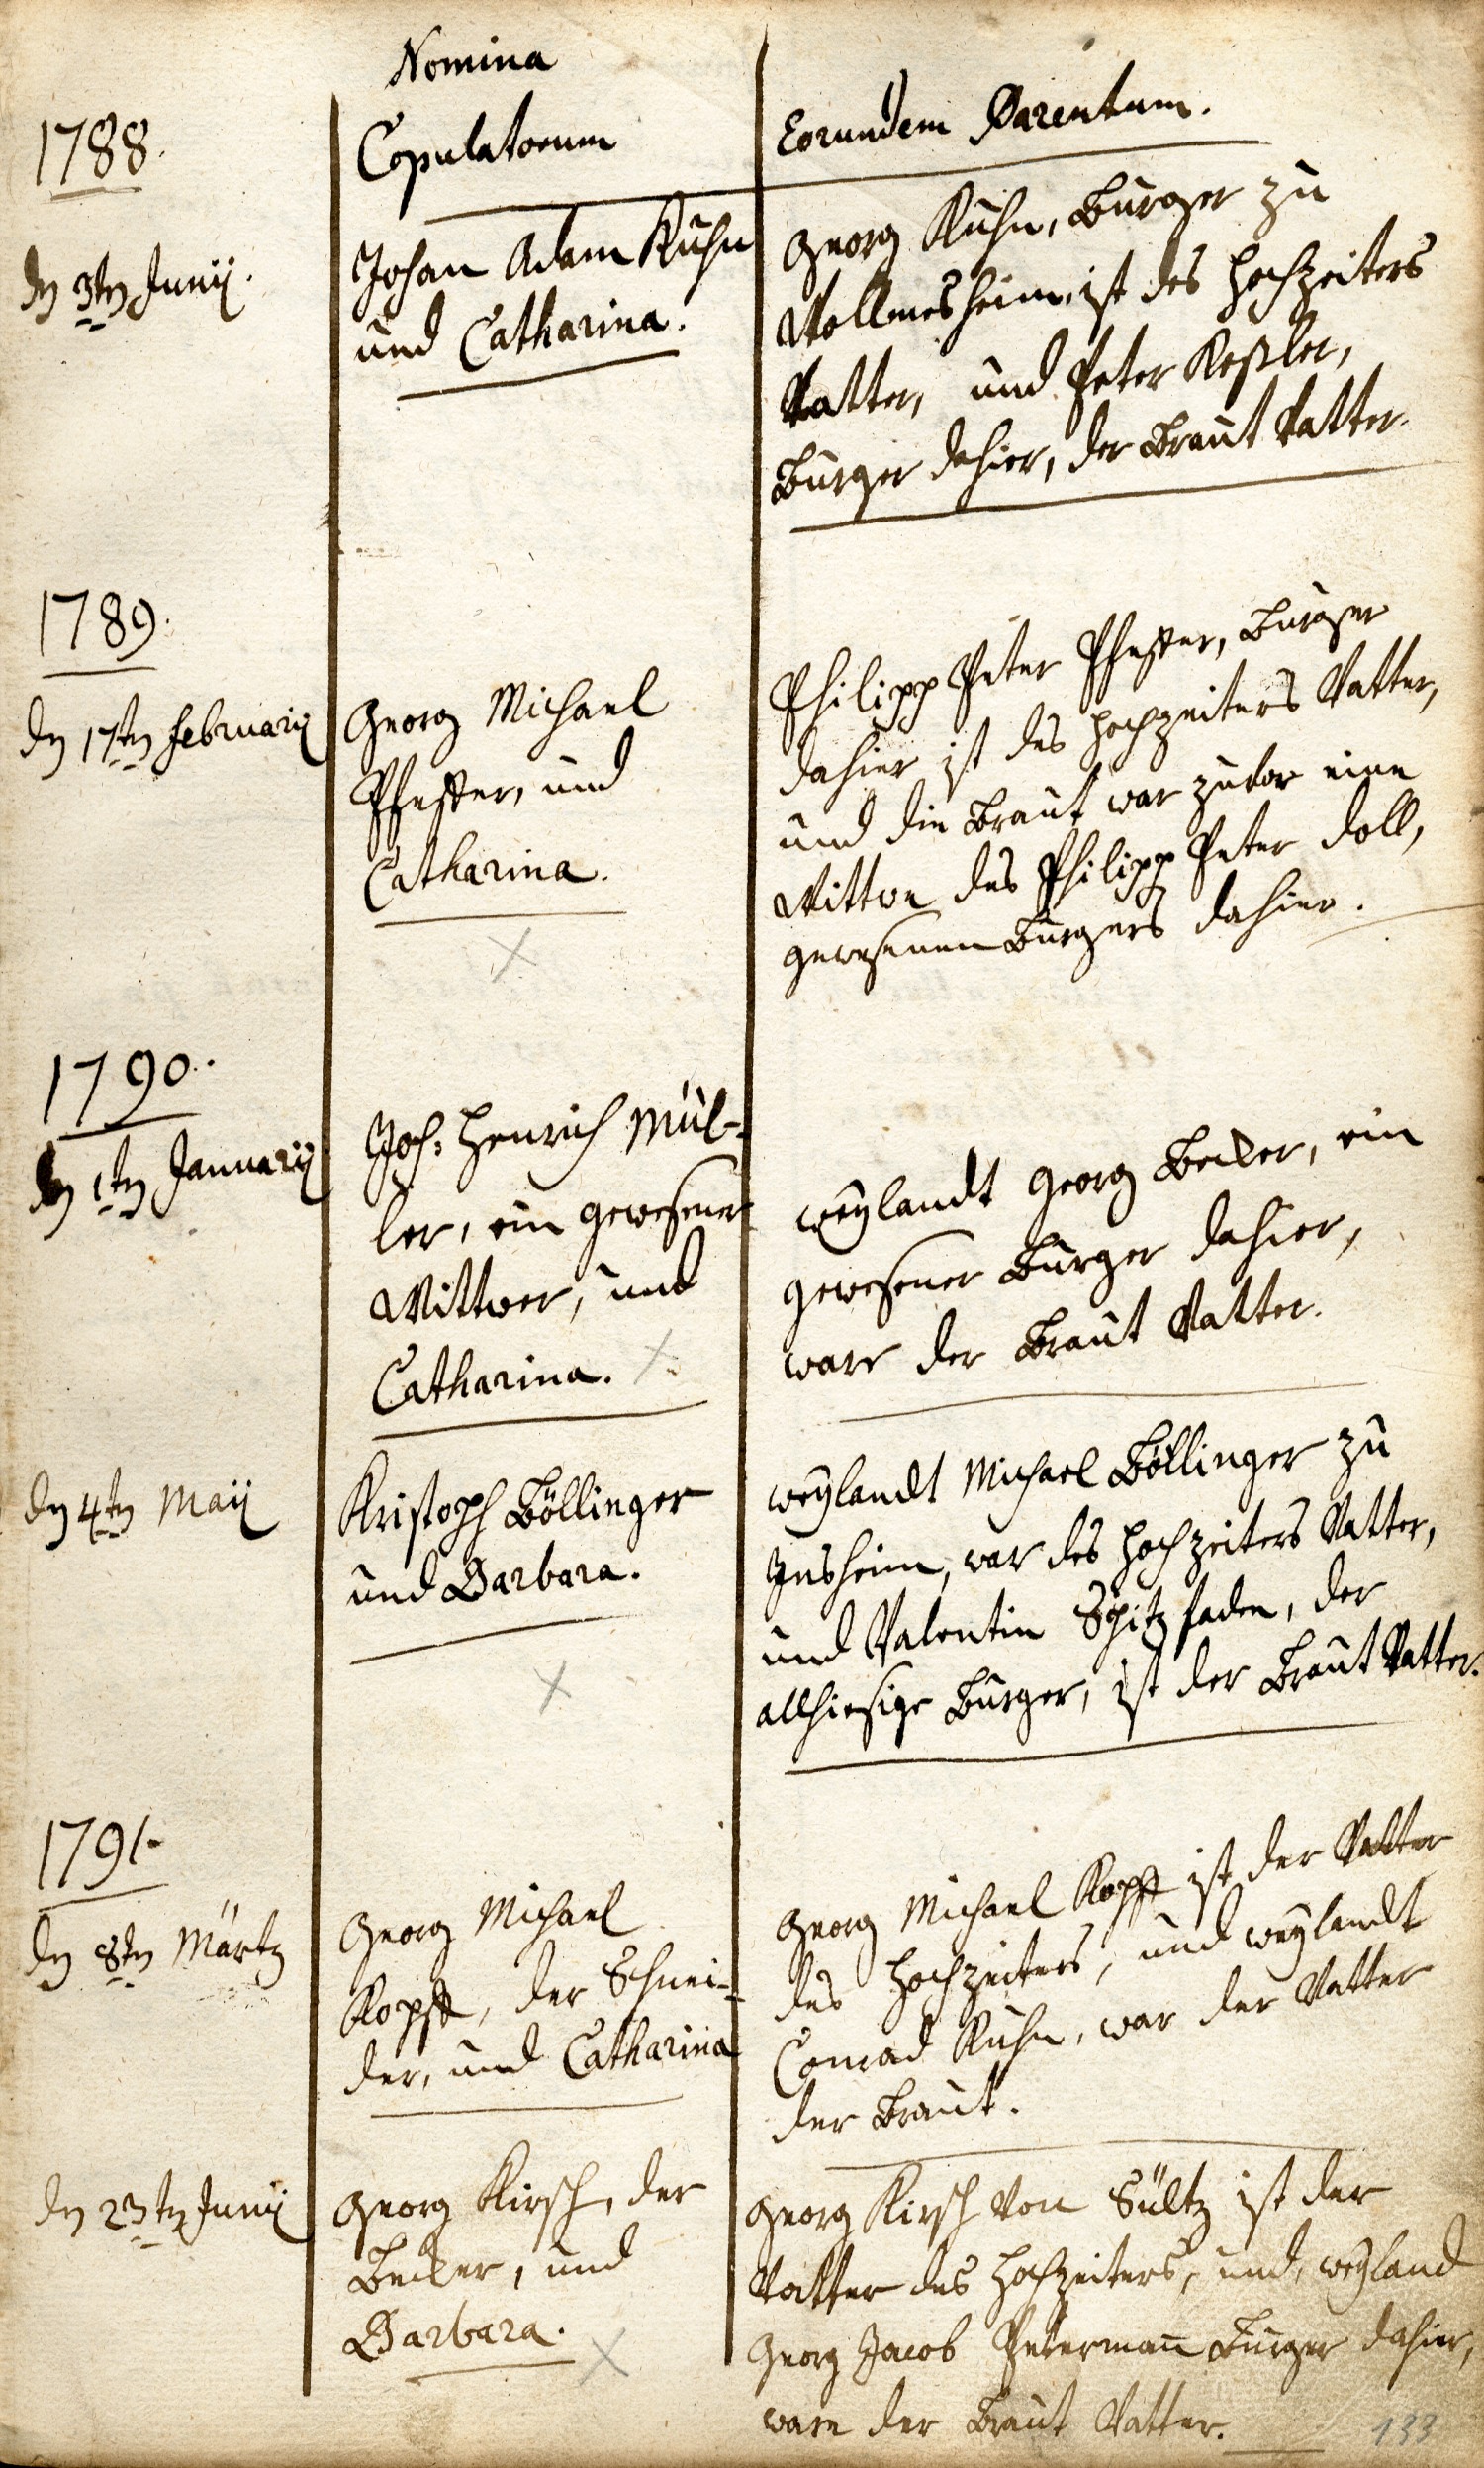 Nomina
Copulatorum
Eorundem Parentum.
1788.
dn 3tn Junij.
Johan Adam Kuhn
und Catharina.
Georg Kuhn, Burger zu
Wollmesheim, ist des Hochzeiters
Vatter, und Peter Keßler,
Burger dahier, der Braut Vatter.
1789.
dn 17tn Februarij
Georg Michael
Pfeffer, und
Catharina.
Philipp Peter Pfeffer, Burger
dahier ist des Hochzeiters Vatter,
und die Braut war zuvor eine
Wittwe des Philipp Peter Doll,
gewesenen Burgers dahier.
1790.
dn 1tn Januarij
Joh: Henrich Mül-
ler, ein gewesener
Wittwer, und
Catharina.
weylandt Georg Becker, ein
gewesener Burger dahier,
ware der Braut Vatter.
dn 4tn Maij
Kristoph Böllinger
und Barbara.
weylandt Michael Böllinger zu
Insheim, war des Hochzeiters Vatter,
und Valentin Spitzfaden, der
allhiesige Burger, ist der Braut Vatter.
1791.
dn 8tn Märtz
Georg Michael
Kopff, der Schnei-
der, und Catharina
Georg Michael Kopff ist der Vatter
des Hochzeiters, und weylandt
Conrad Kuhn, war der Vatter
der Braut.
dn 23tn Junij
Georg Kirsch, der
Becker, und
Barbara.
Georg Kirsch von Sültz ist der
Vatter des Hochzeiters, und, weyland
Georg Jacob Petermañ Burger dahier,
ware der Braut Vatter.
133